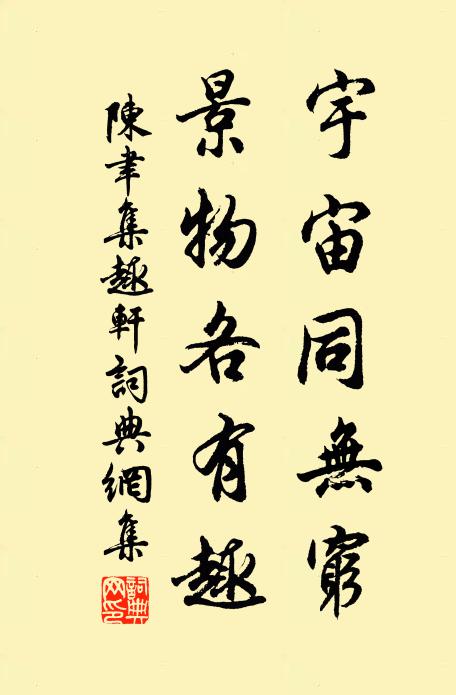 宇宙同無窮
景物各有趣
陳聿集趣軒詞典網集
詞典網印